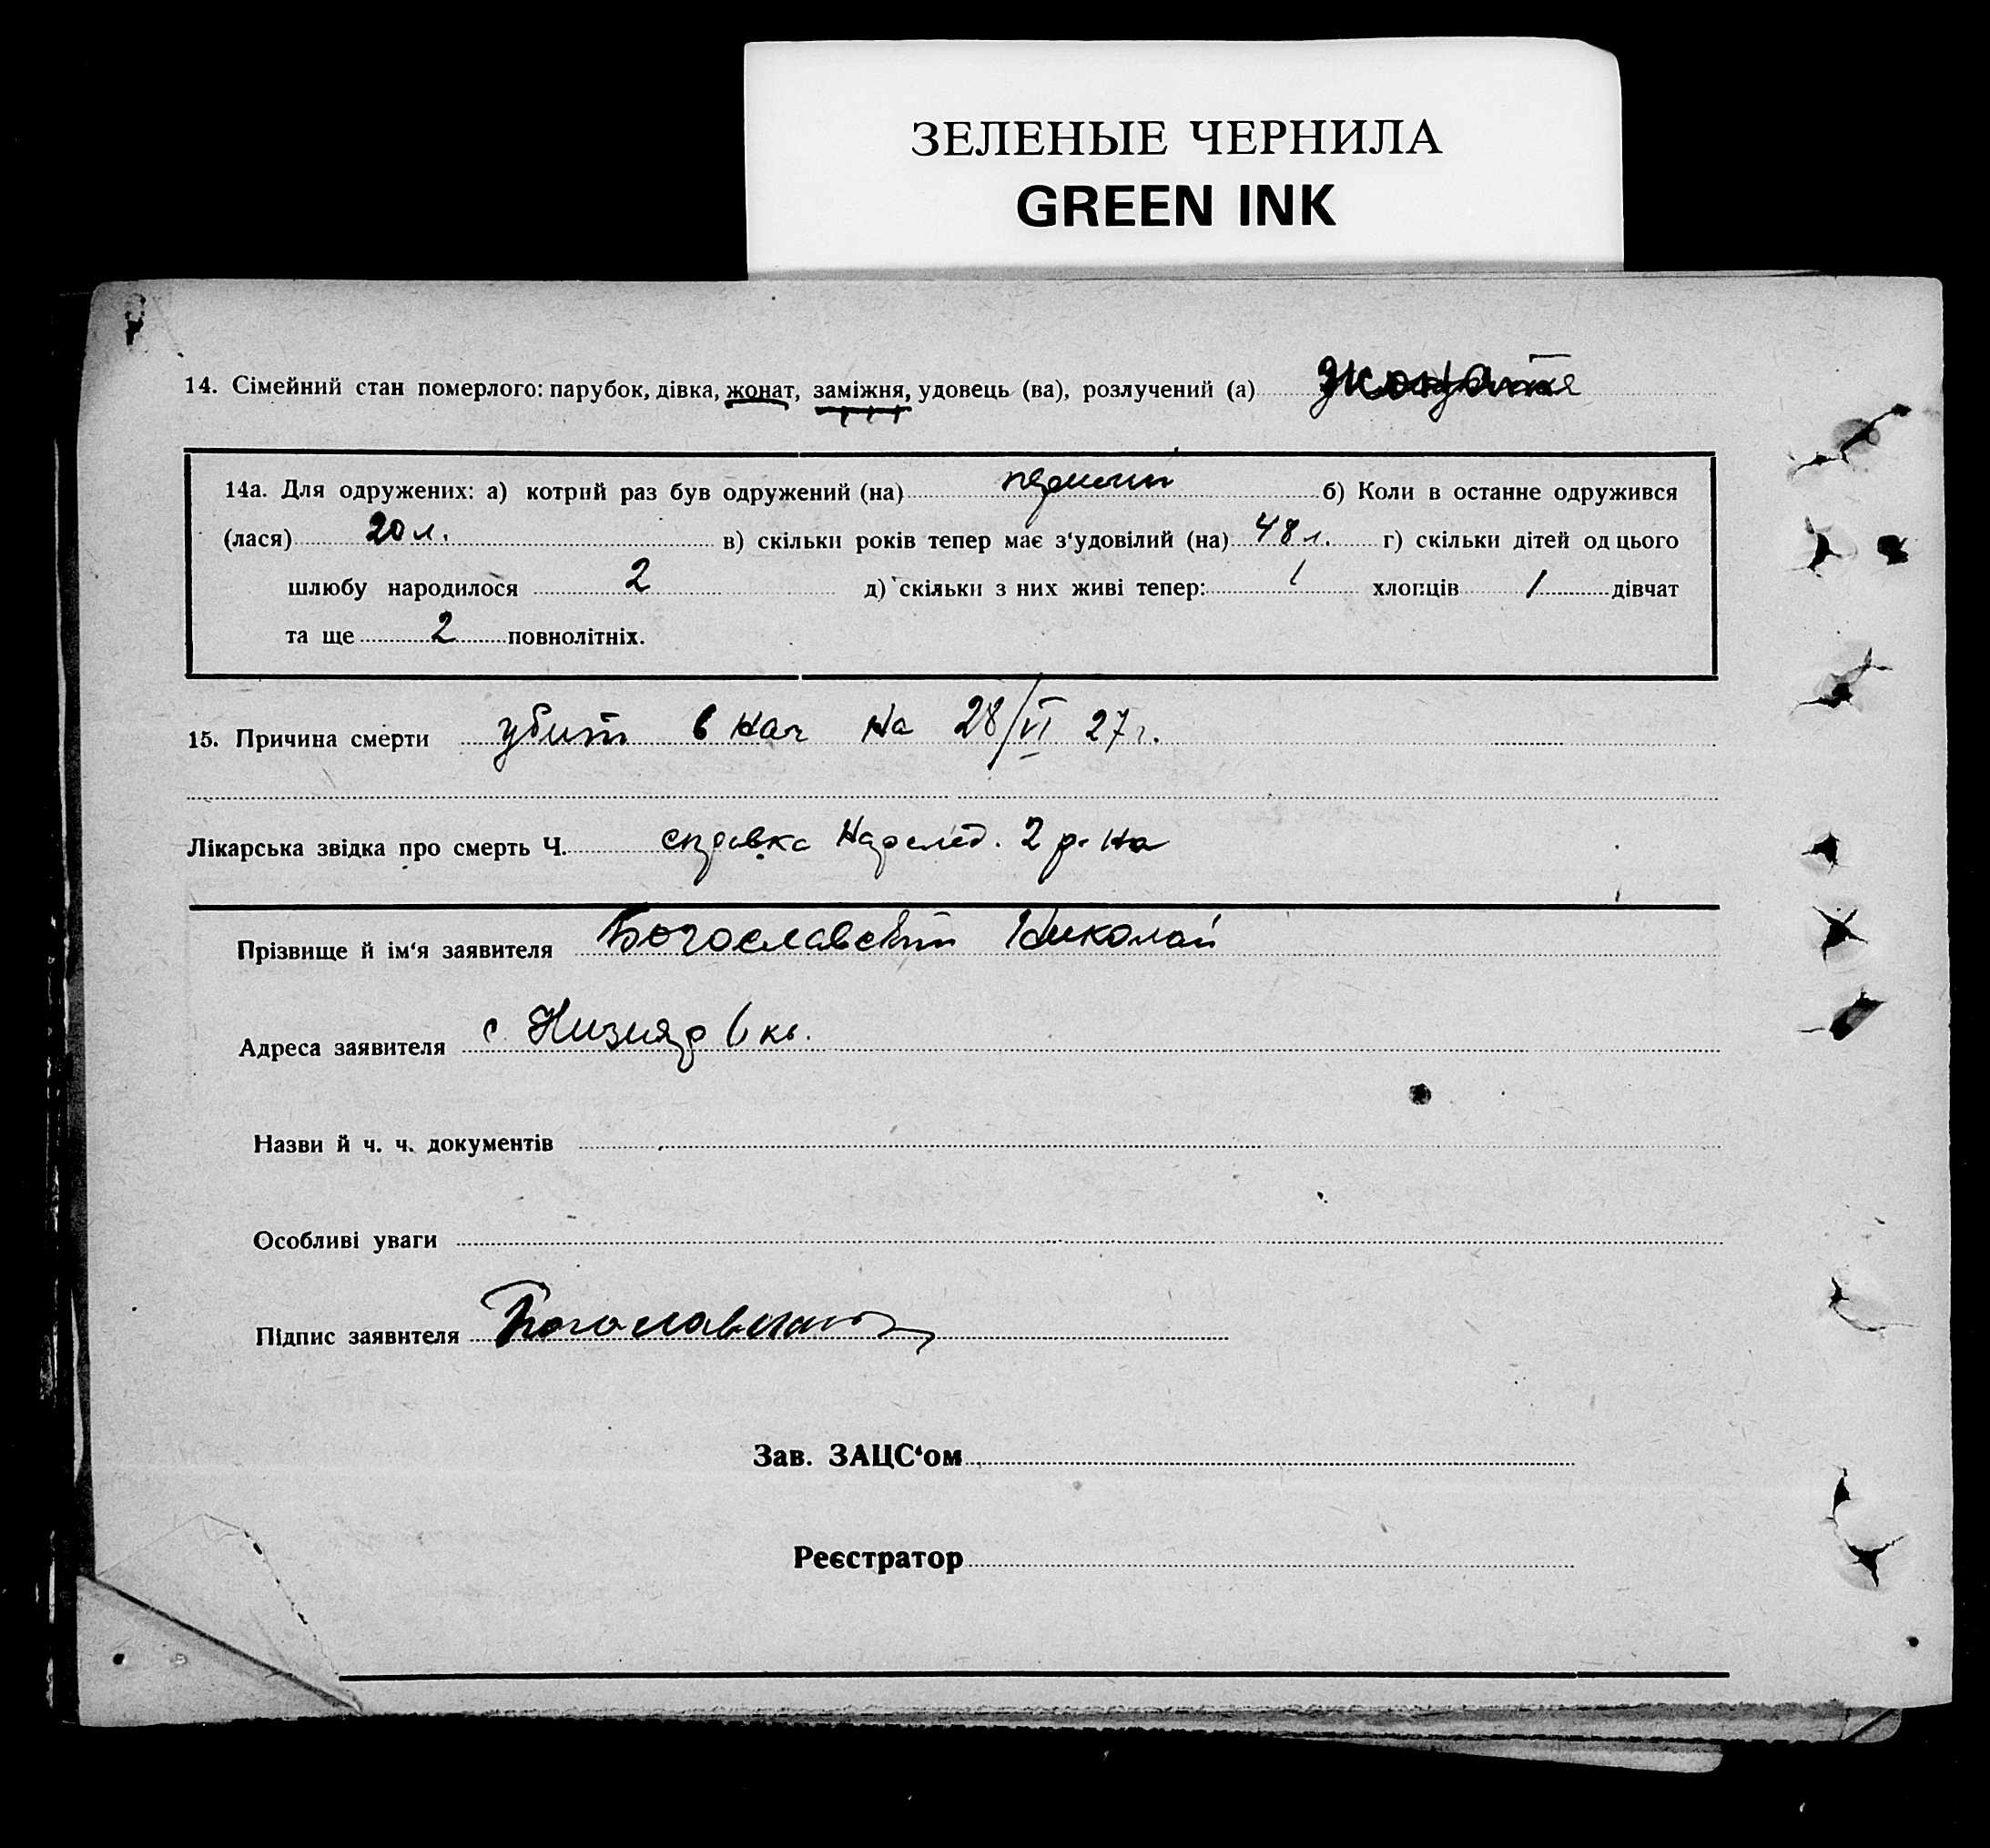 ЗЕЛЕНЫЕ ЧЕРНИЛА
GREEN INK
14. Сімейний стан померлого: парубок, дівка, жонат, заміжня, удовець (ва), розлучений (а)
14а. Для одружених: а) котрий раз був одружений (на) первый б) Коли в останне одружився
(лася) 20 л. в) скільки років тепер має з‘удовілий (на) 48 л. г) скільки дітей од цього
шлюбу народилося 2 д) скільки з них живі тепер: 1 хлопців 1 дівчат
та ще 2 повнолітніх.
15. Причина смерти убит в ноч на 28/VI 27 г.
Лікарська звідка про смерть Ч. справка Нарслед. 2 р-на
Прізвище й ім‘я заявителя Богославский Николай
Адреса заявителя с.
Назви й ч. ч. документів
Особливі уваги
Підпис заявителя
Зав. ЗАЦС‘ом
Реєстратор